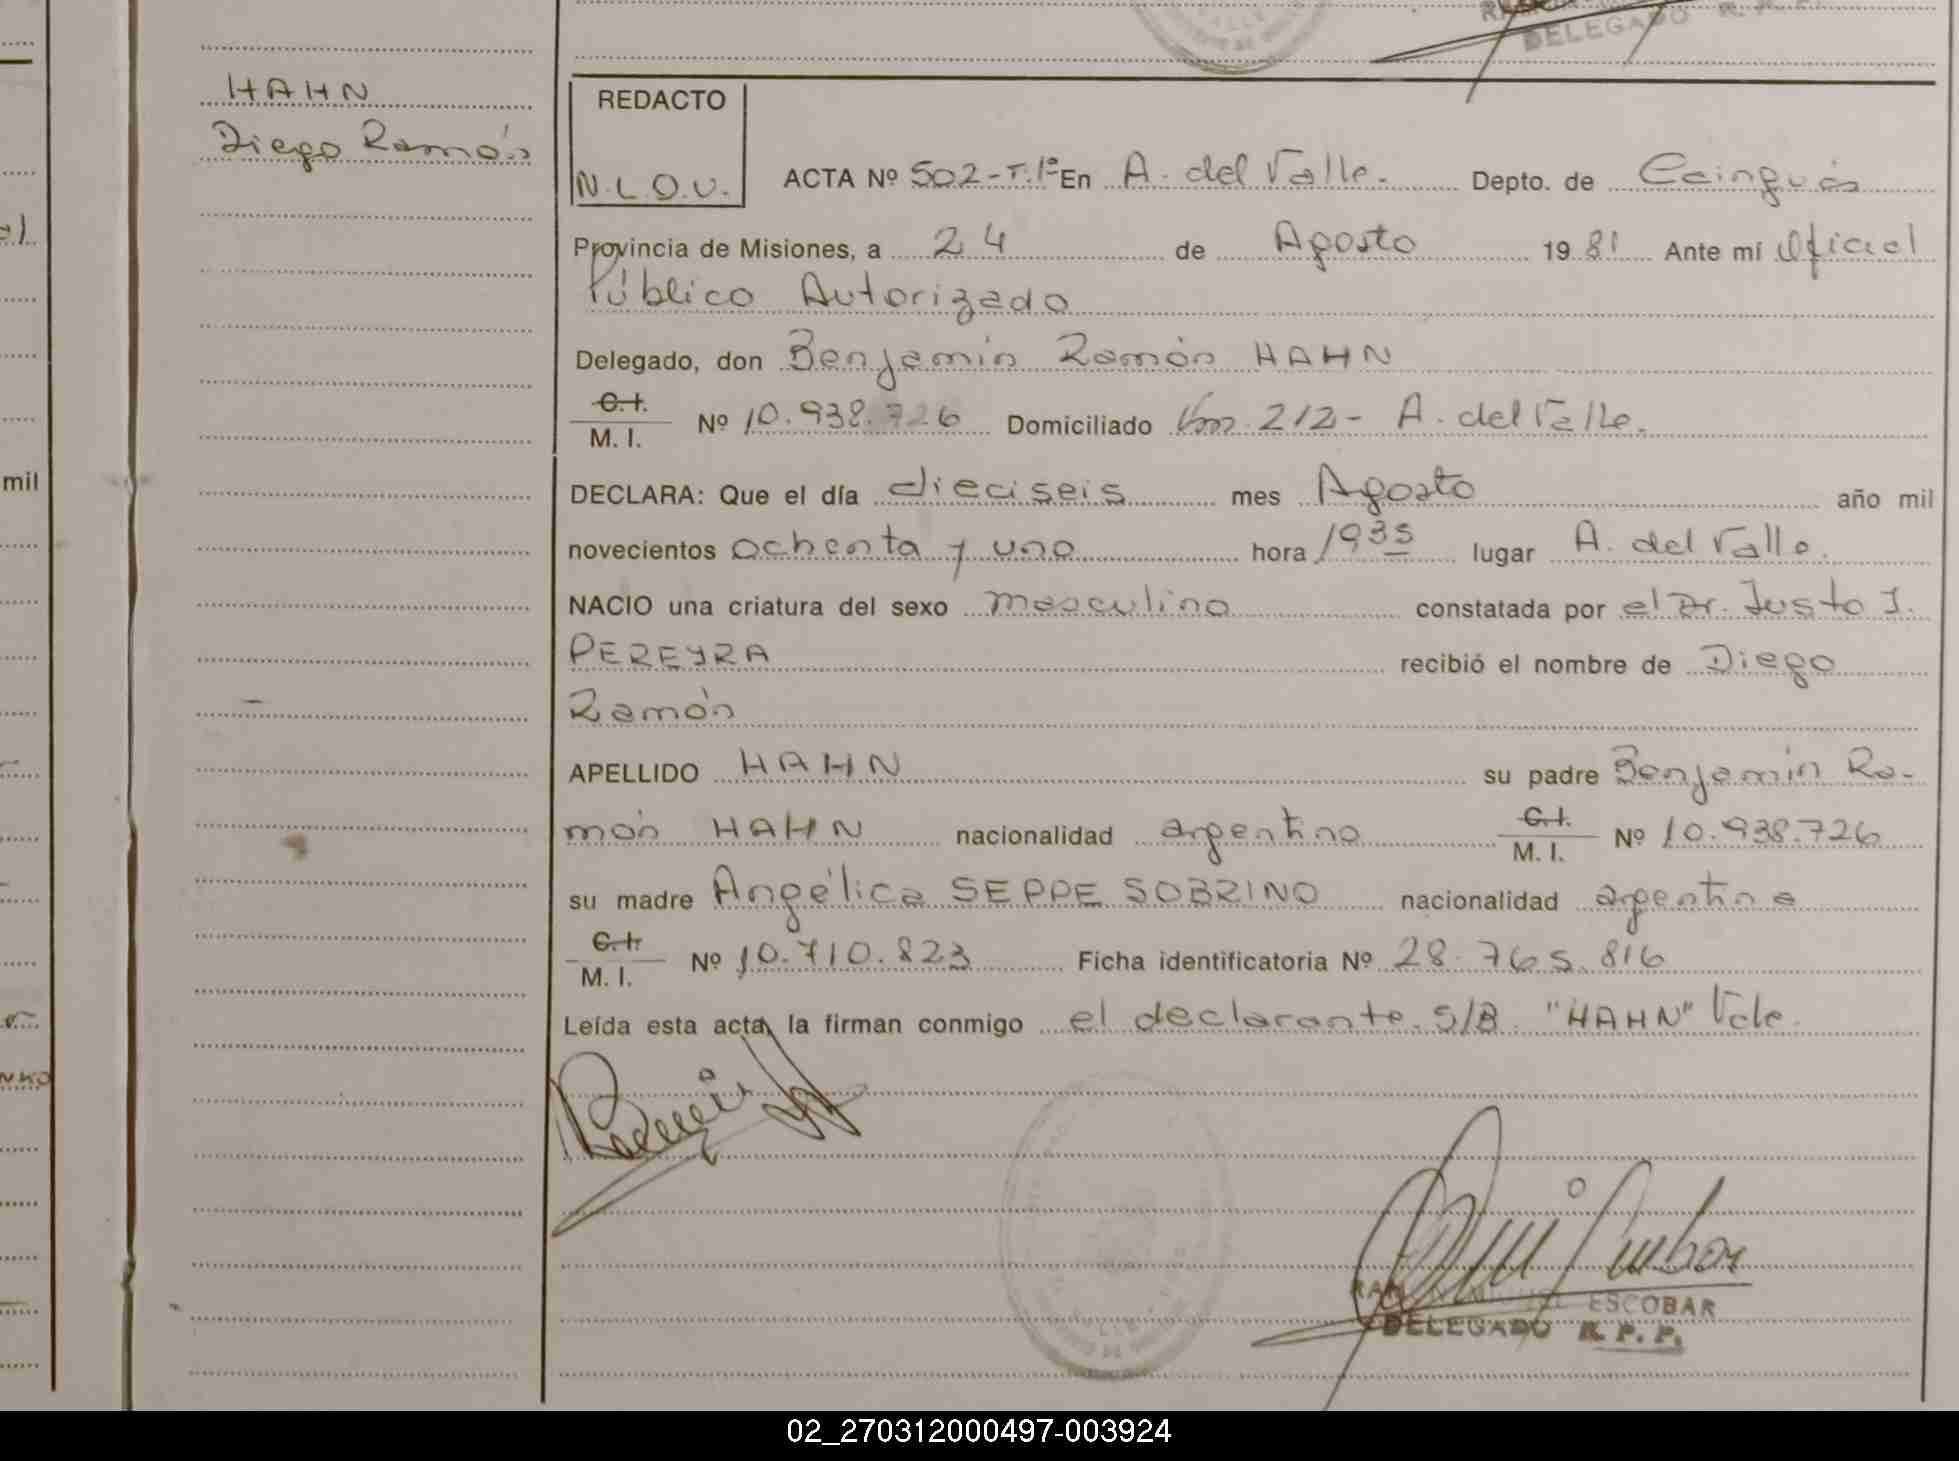 DELEGADO R. P. P.
HAHN
Diego Ramón
REDACTO
N.L.O.V.
ACTA Nº 502-T.1º En A. del Valle. Depto. de Cainguás
Provincia de Misiones, a 24 de Agosto 19 81 Ante mí Oficial
Público Autorizado
Delegado, don Benjamín Ramón HAHN
C.I.
M. I. Nº 10.938.726 Domiciliado Km 212- A. del Valle.
DECLARA: Que el día dieciseis mes Agosto año mil
novecientos ochenta y uno hora 1935 lugar A. del Valle.
NACIO una criatura del sexo masculino constatada por el Dr. Justo I.
PEREYRA recibió el nombre de Diego
Ramón
APELLIDO HAHN su padre Benjamín Ra-
món HAHN nacionalidad argentino C.I. M. I. Nº 10.938.726
su madre Angélica SEPPE SOBRINO nacionalidad argentina
C.I.
M. I. Nº 10.710.823 Ficha identificatoria Nº 28.765.816
Leída esta acta, la firman conmigo el declarante. S/B. "HAHN" Vale.
ESCOBAR
DELEGADO R. P. P.
mil
02_270312000497-003924